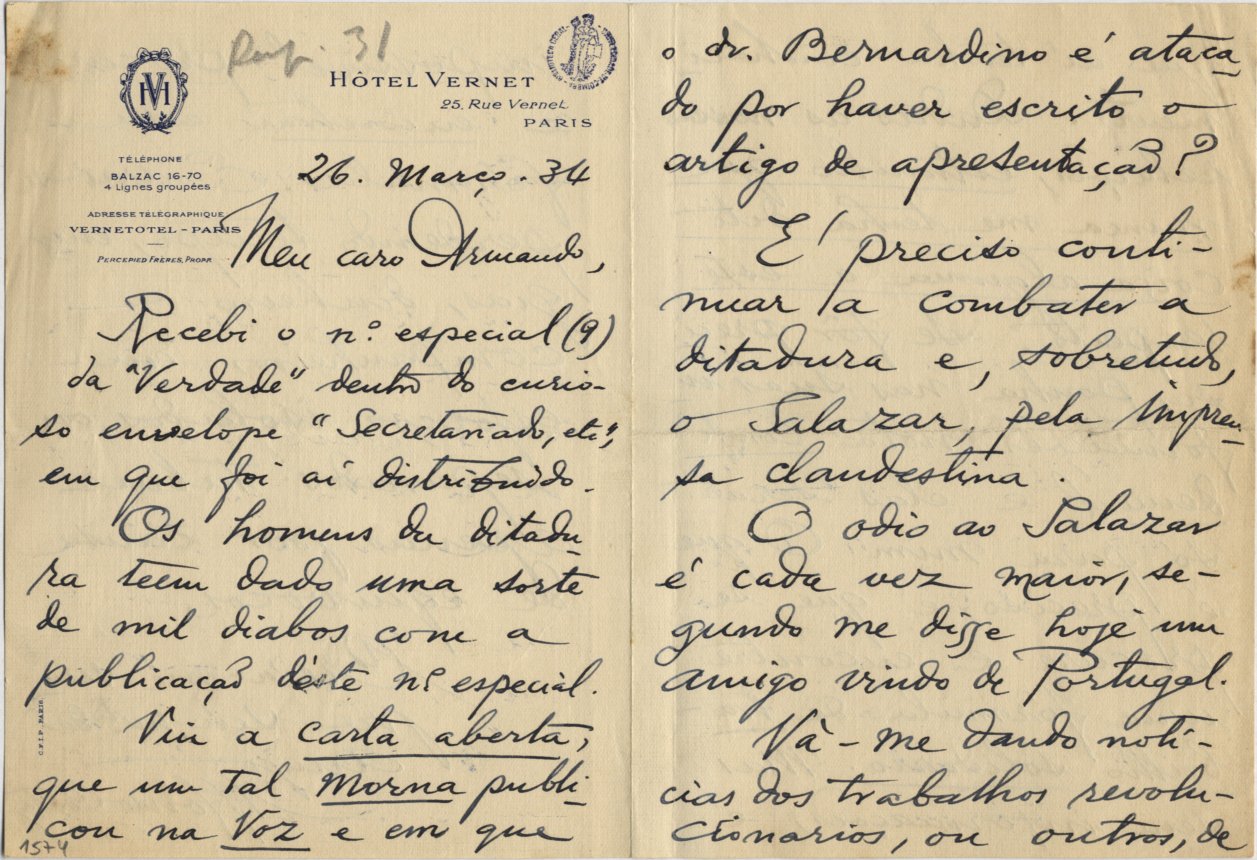 Resp. 31
HÔTEL VERNET
25, Rue Vernet
PARIS
VH
TÉLÉPHONE
BALZAC 16-70
4 Lignes groupées
ADRESSE TÉLÉGRAPHIQUE
VERNETOTEL - PARIS
PERCEPIED FRÈRES, PROPR.
26. Março. 34
Meu caro Armando,
Recebi o nº especial (9)
da "Verdade" dentro do curio-
so envelope "Secretariado, etc",
em que foi aí distribuido.
Os homens da ditadu-
ra teem dado uma sorte
de mil diabos com a
publicação dêste nº especial.
Viu a carta aberta,
que um tal Morna publi-
cou na Voz e em que
C.F.I.P. PARIS
1574
o dr. Bernardino é ataca-
do por haver escrito o
artigo de apresentação?
É preciso conti-
nuar a combater a
ditadura e, sobretudo,
o Salazar, pela impren-
sa clandestina.
O odio ao Salazar
é cada vez maior, se-
gundo me disse hoje um
amigo vindo de Portugal.
Vá-me dando notí-
cias dos trabalhos revolu-
cionarios, ou outros, de